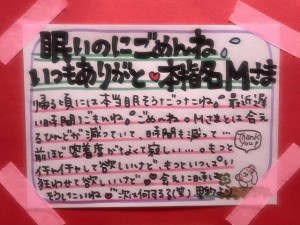 眠いのにごめんね
いつもありがと♥本指名Mさま
帰る頃には本当眠そうだったね。最近遅
い時間ごもんね。ごめんね。Mさまとは会え
るひんどが減っていて、時間も減って…
前ほど密着度がなくて寂しい…。もっと
イチャイチャして欲しいけど、もっといっぱい
狂わせて欲しいけど♥会えた日
そうしたいね♥次は何する(笑)
Thank You!